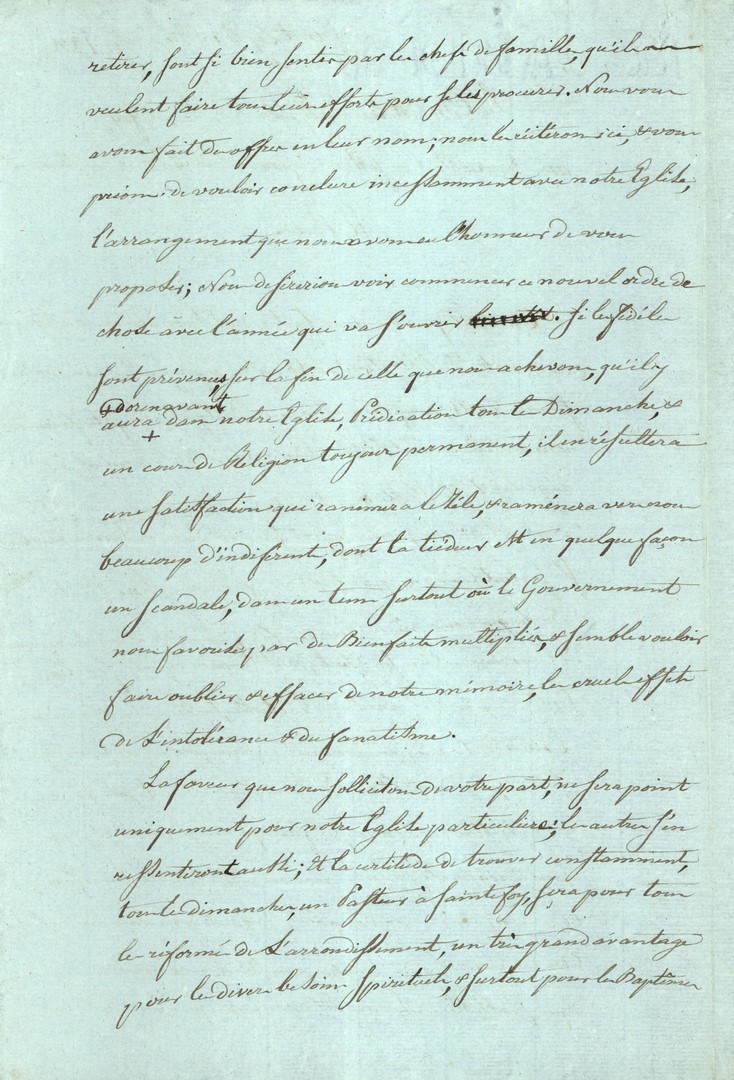 retirer, sont si bien sentis par les chefs de famille, qu'ils
veulent faire tous leurs efforts pour se les procurer. Nous vous
avons fait des offres en leur nom; nous les réitérons ici, & vous
prions de vouloir conclure incessamment avec notre Eglise,
l'arrangement que nous avons eu l'honneur de vous
proposer; Nous desirerions voir commencer ce nouvel ordre de
chose avec l'année qui va s'ouvrir . Si les fidéles
sont prévenus, sur la fin de celle que nous achevons, qu'il y
+ dorenavant
aura + dans notre Eglise, Prédication tous les Dimanches, &
un cours de Religion toujours permanent, il en résultera
une satisfaction qui ranimera le zéle, & raménera vers nous
beaucoup d'indiférents, dont la tiédeur est en quelque façon
un scandale; dans un tems surtout où le Gouvernement
nous favorise par des Bienfaits multipliés, & semble vouloir
faire oublier & effacer de notre mémoire, les cruels effets
de l'intolérance & du fanatisme.
La faveur que nous sollicitons de votre part, ne sera point
uniquement pour notre Eglise particuliere; les autres s'en
ressentiront aussi; Et la certitude de trouver constamment,
tous les dimanches, un Pasteur à Sainte foy, sera pour tous
les réformés de l'arrondissement, un très grand avantage
pour les divers besoins spirituels, & surtout pour les Baptêmes